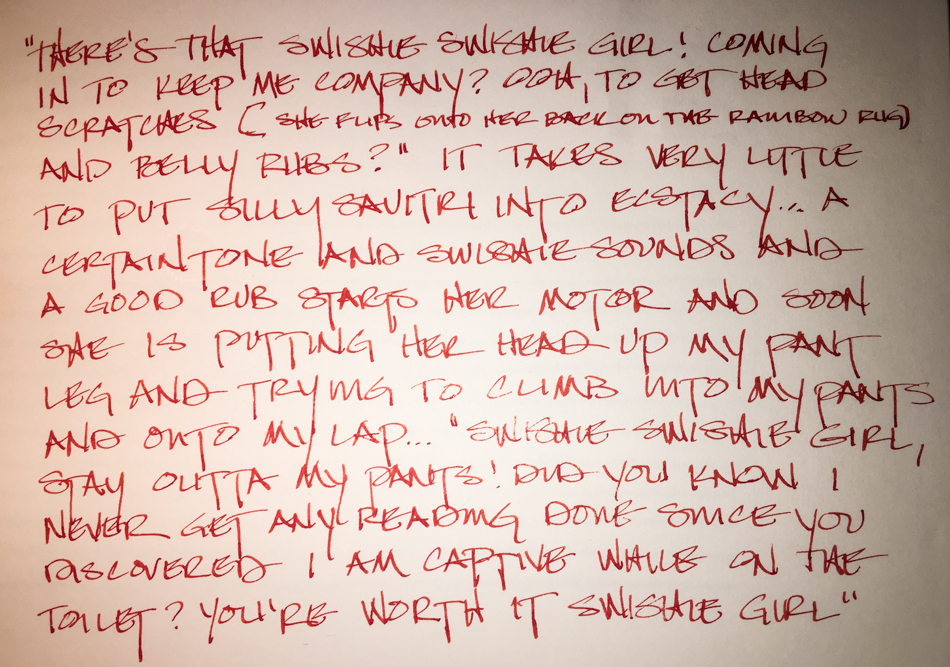 "THERE'S THAT SWISHIE SWISHIE GIRL! COMING
IN TO KEEP ME COMPANY? OOH, TO GET HEAD
SCRATCHES (SHE FLIPS ONTO HER BACK ON THE RAINBOW RUG)
AND BELLY RUBS?" IT TAKES VERY LITTLE
TO PUT SILLY SAVITRI INTO ECSTACY... A
CERTAIN TONE AND SWISHIE SOUNDS AND
A GOOD RUB STARTS HER MOTOR AND SOON
SHE IS PUTTING HER HEAD UP MY PANT
LEG AND TRYING TO CLIMB INTO MY PANTS
AND ONTO MY LAP... "SWISHIE SWISHIE GIRL,
STAY OUTTA MY PANTS! DID YOU KNOW I
NEVER GET ANY READING DONE SINCE YOU
DISCOVERED I AM CAPTIVE WHILE ON THE
TOILET? YOU'RE WORTH IT SWISHIE GIRL"